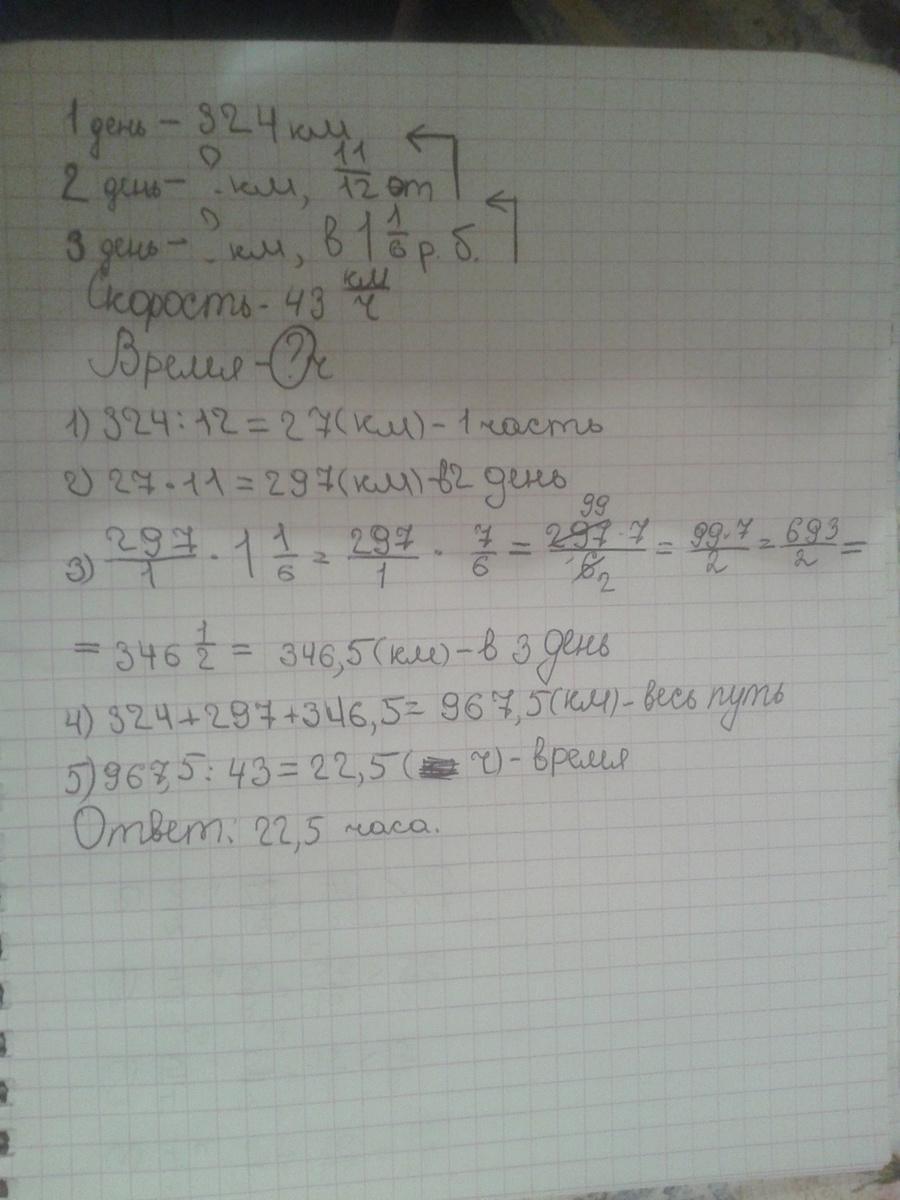 1 день - 324 км
2 день - ? км, 11/12 от
3 день - ? км, в 1 1/6 р. б.
Скорость - 43 км/ч
Время - ? ч
1) 324 : 12 = 27 (км) - 1 часть
2) 27 · 11 = 297 (км) - в 2 день
3) 297/1 · 1 1/6 = 297/1 · 7/6 = 297 · 7/6 99 2 = 99 · 7/2 = 693/2 =
= 346 1/2 = 346,5 (км) - в 3 день
4) 324 + 297 + 346,5 = 967,5 (км) - весь путь
5) 967,5 : 43 = 22,5 ( ч) - время
Ответ: 22,5 часа.